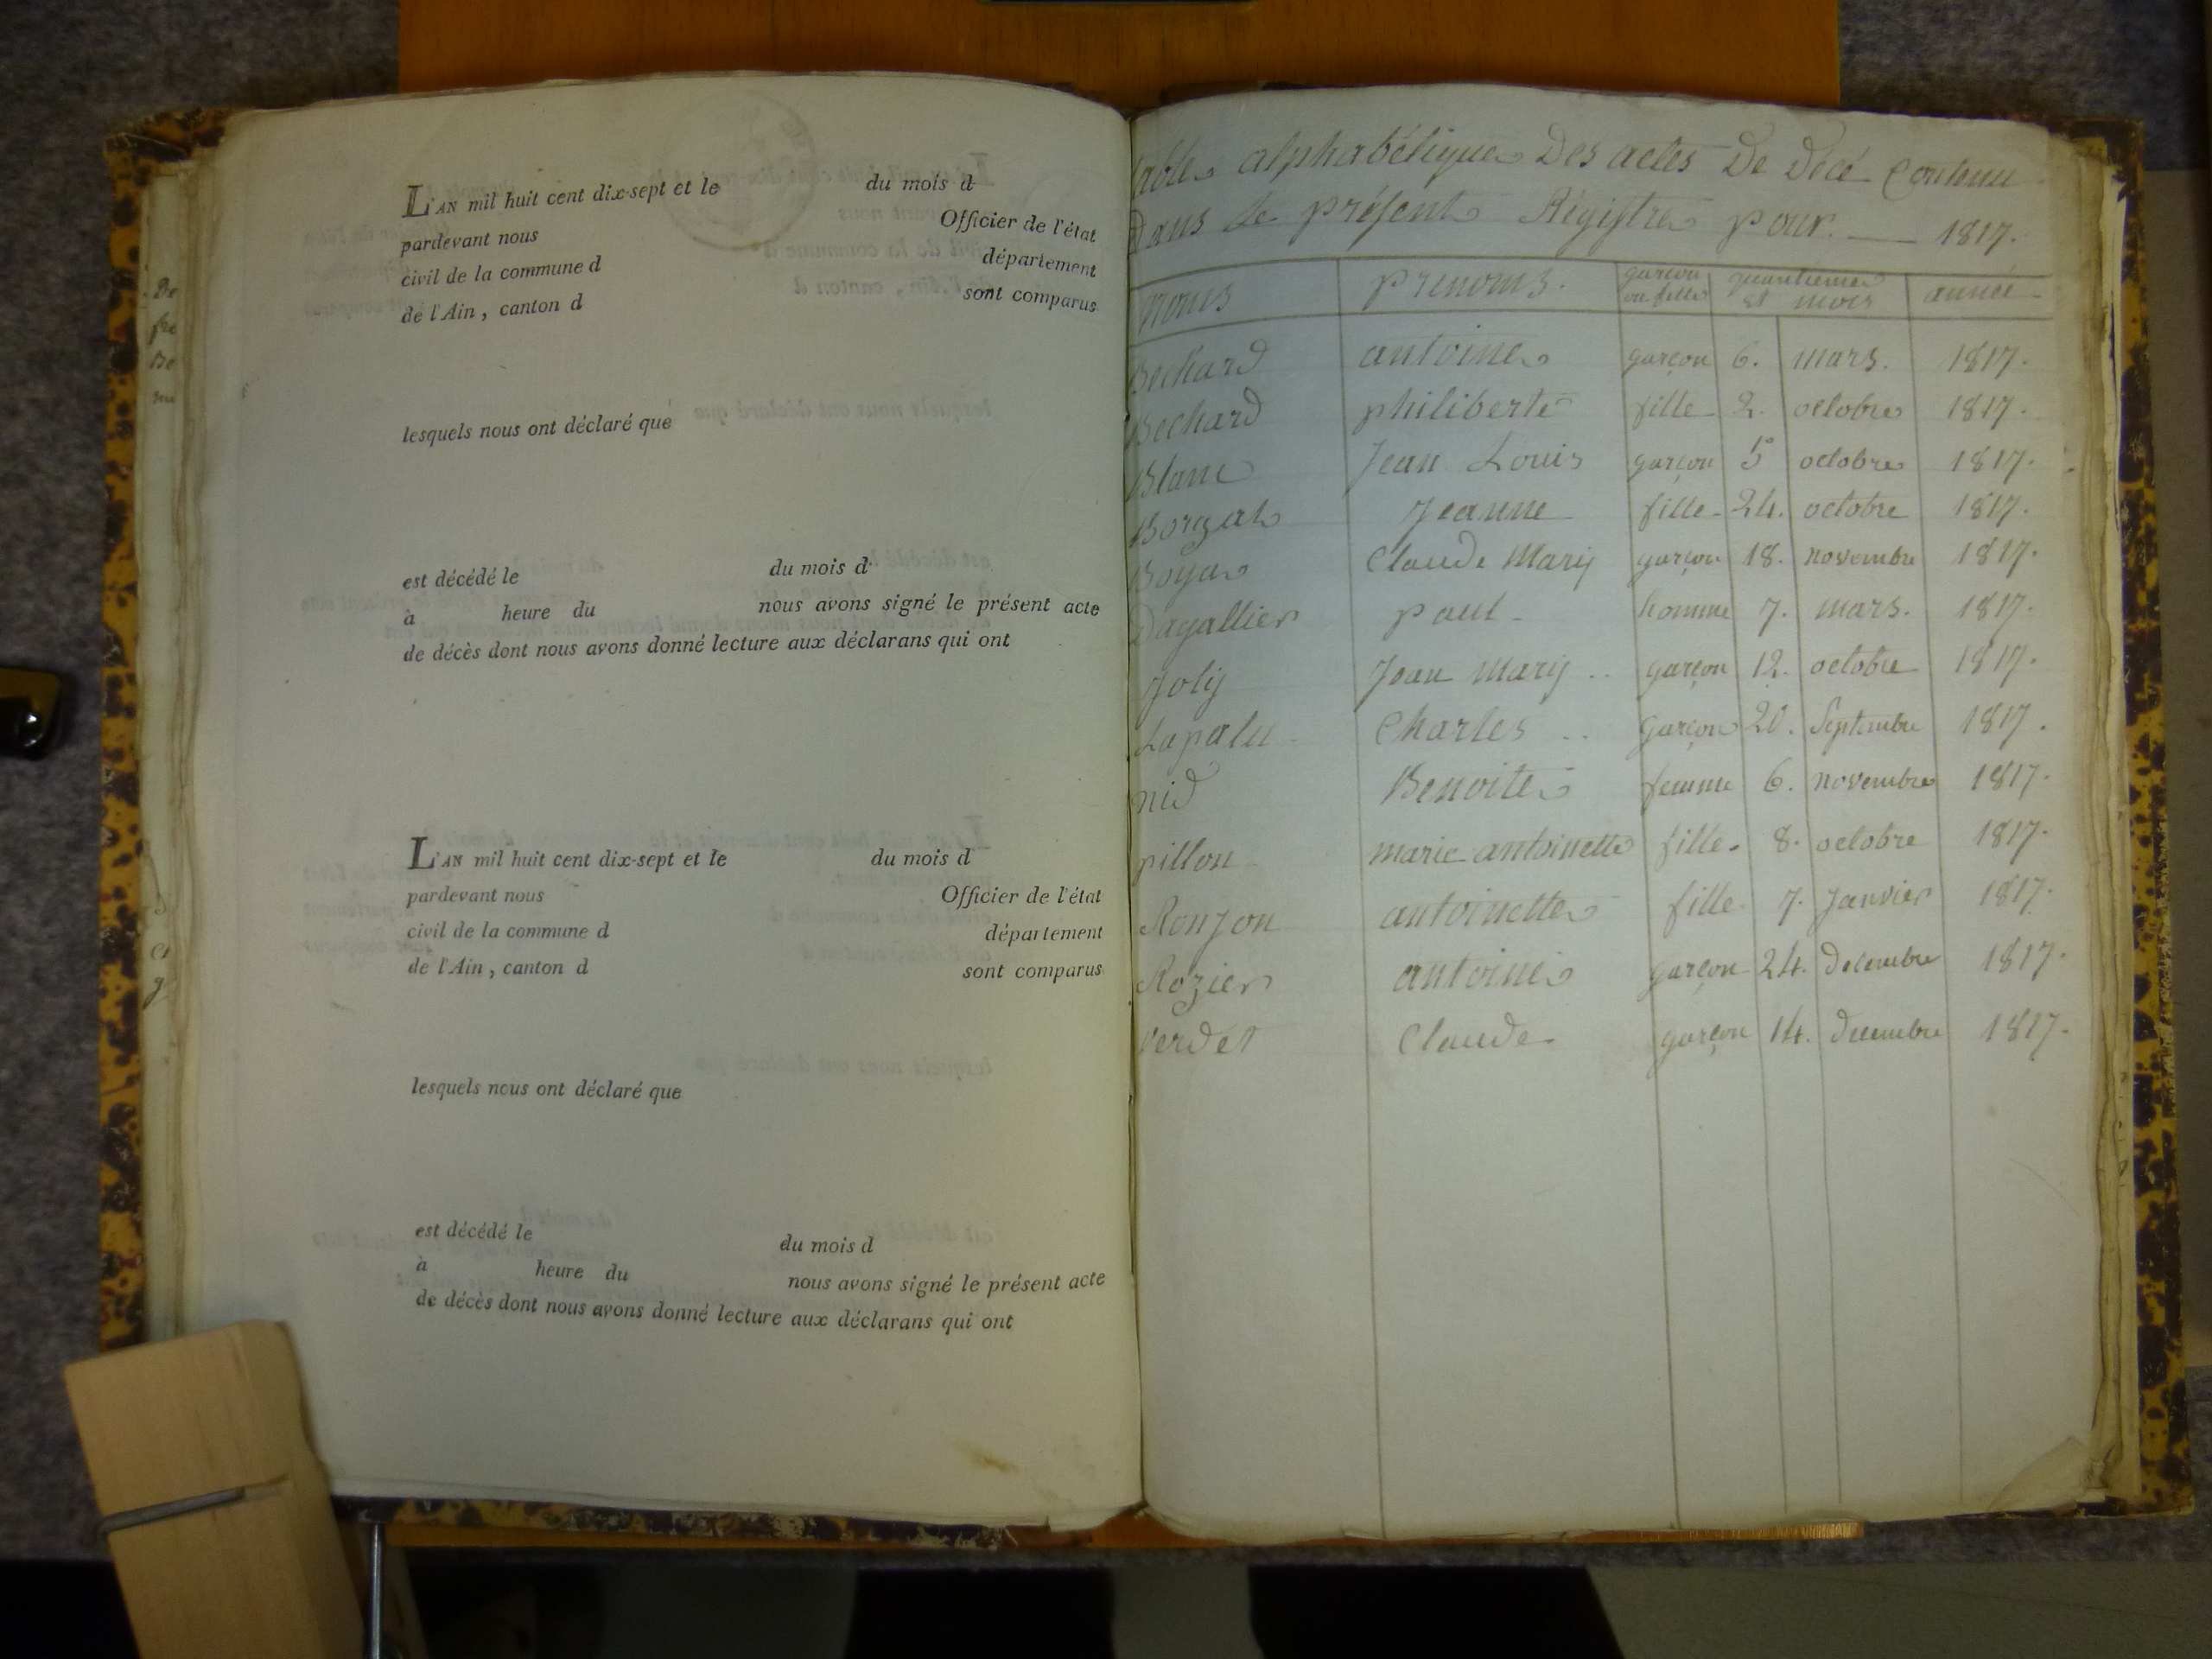 L'AN mil huit cent dix-sept et le du mois d
pardevant nous Officier de l'état
civil de la commune d département
de l'Ain, canton d sont comparus
lesquels nous ont déclaré que
est décédé le du mois d
à heure du nous avons signé le présent acte
de décès dont nous avons donné lecture aux déclarans qui ont
L'AN mil huit cent dix-sept et le du mois d
pardevant nous Officier de l'état
civil de la commune d département
de l'Ain, canton d sont comparus
lesquels nous ont déclaré que
est décédé le du mois d
à heure du nous avons signé le présent acte
de décès dont nous avons donné lecture aux déclarans qui ont
table alphabétique Des actes De Décé Contenu
Dans le présent Régistre pour. 1817.
noms prenoms. garçon ou fille quantieme et mois année
Bechard antoine garçon 6. mars. 1817.
Bechard philiberte fille 2. octobre 1817.
Blanc Jean Louis garçon 5 octobre 1817.
Borgat Jeanne fille 24. octobre 1817.
Boya Claude Mary garçon 18. novembre 1817.
Dagallier paul homme 7. mars. 1817.
Joly Jean Mary .. garçon 12. octobre 1817.
Lapalu Charles .. garçon 20. Septembre 1817.
nid Benoite femme 6. novembre 1817.
pillon marie antoinette fille. 8. octobre 1817.
Ronjon antoinette fille 7. Janvier 1817.
Rozier antoine garçon 24. Decembre 1817.
verdet Claude garçon 14. decembre 1817.